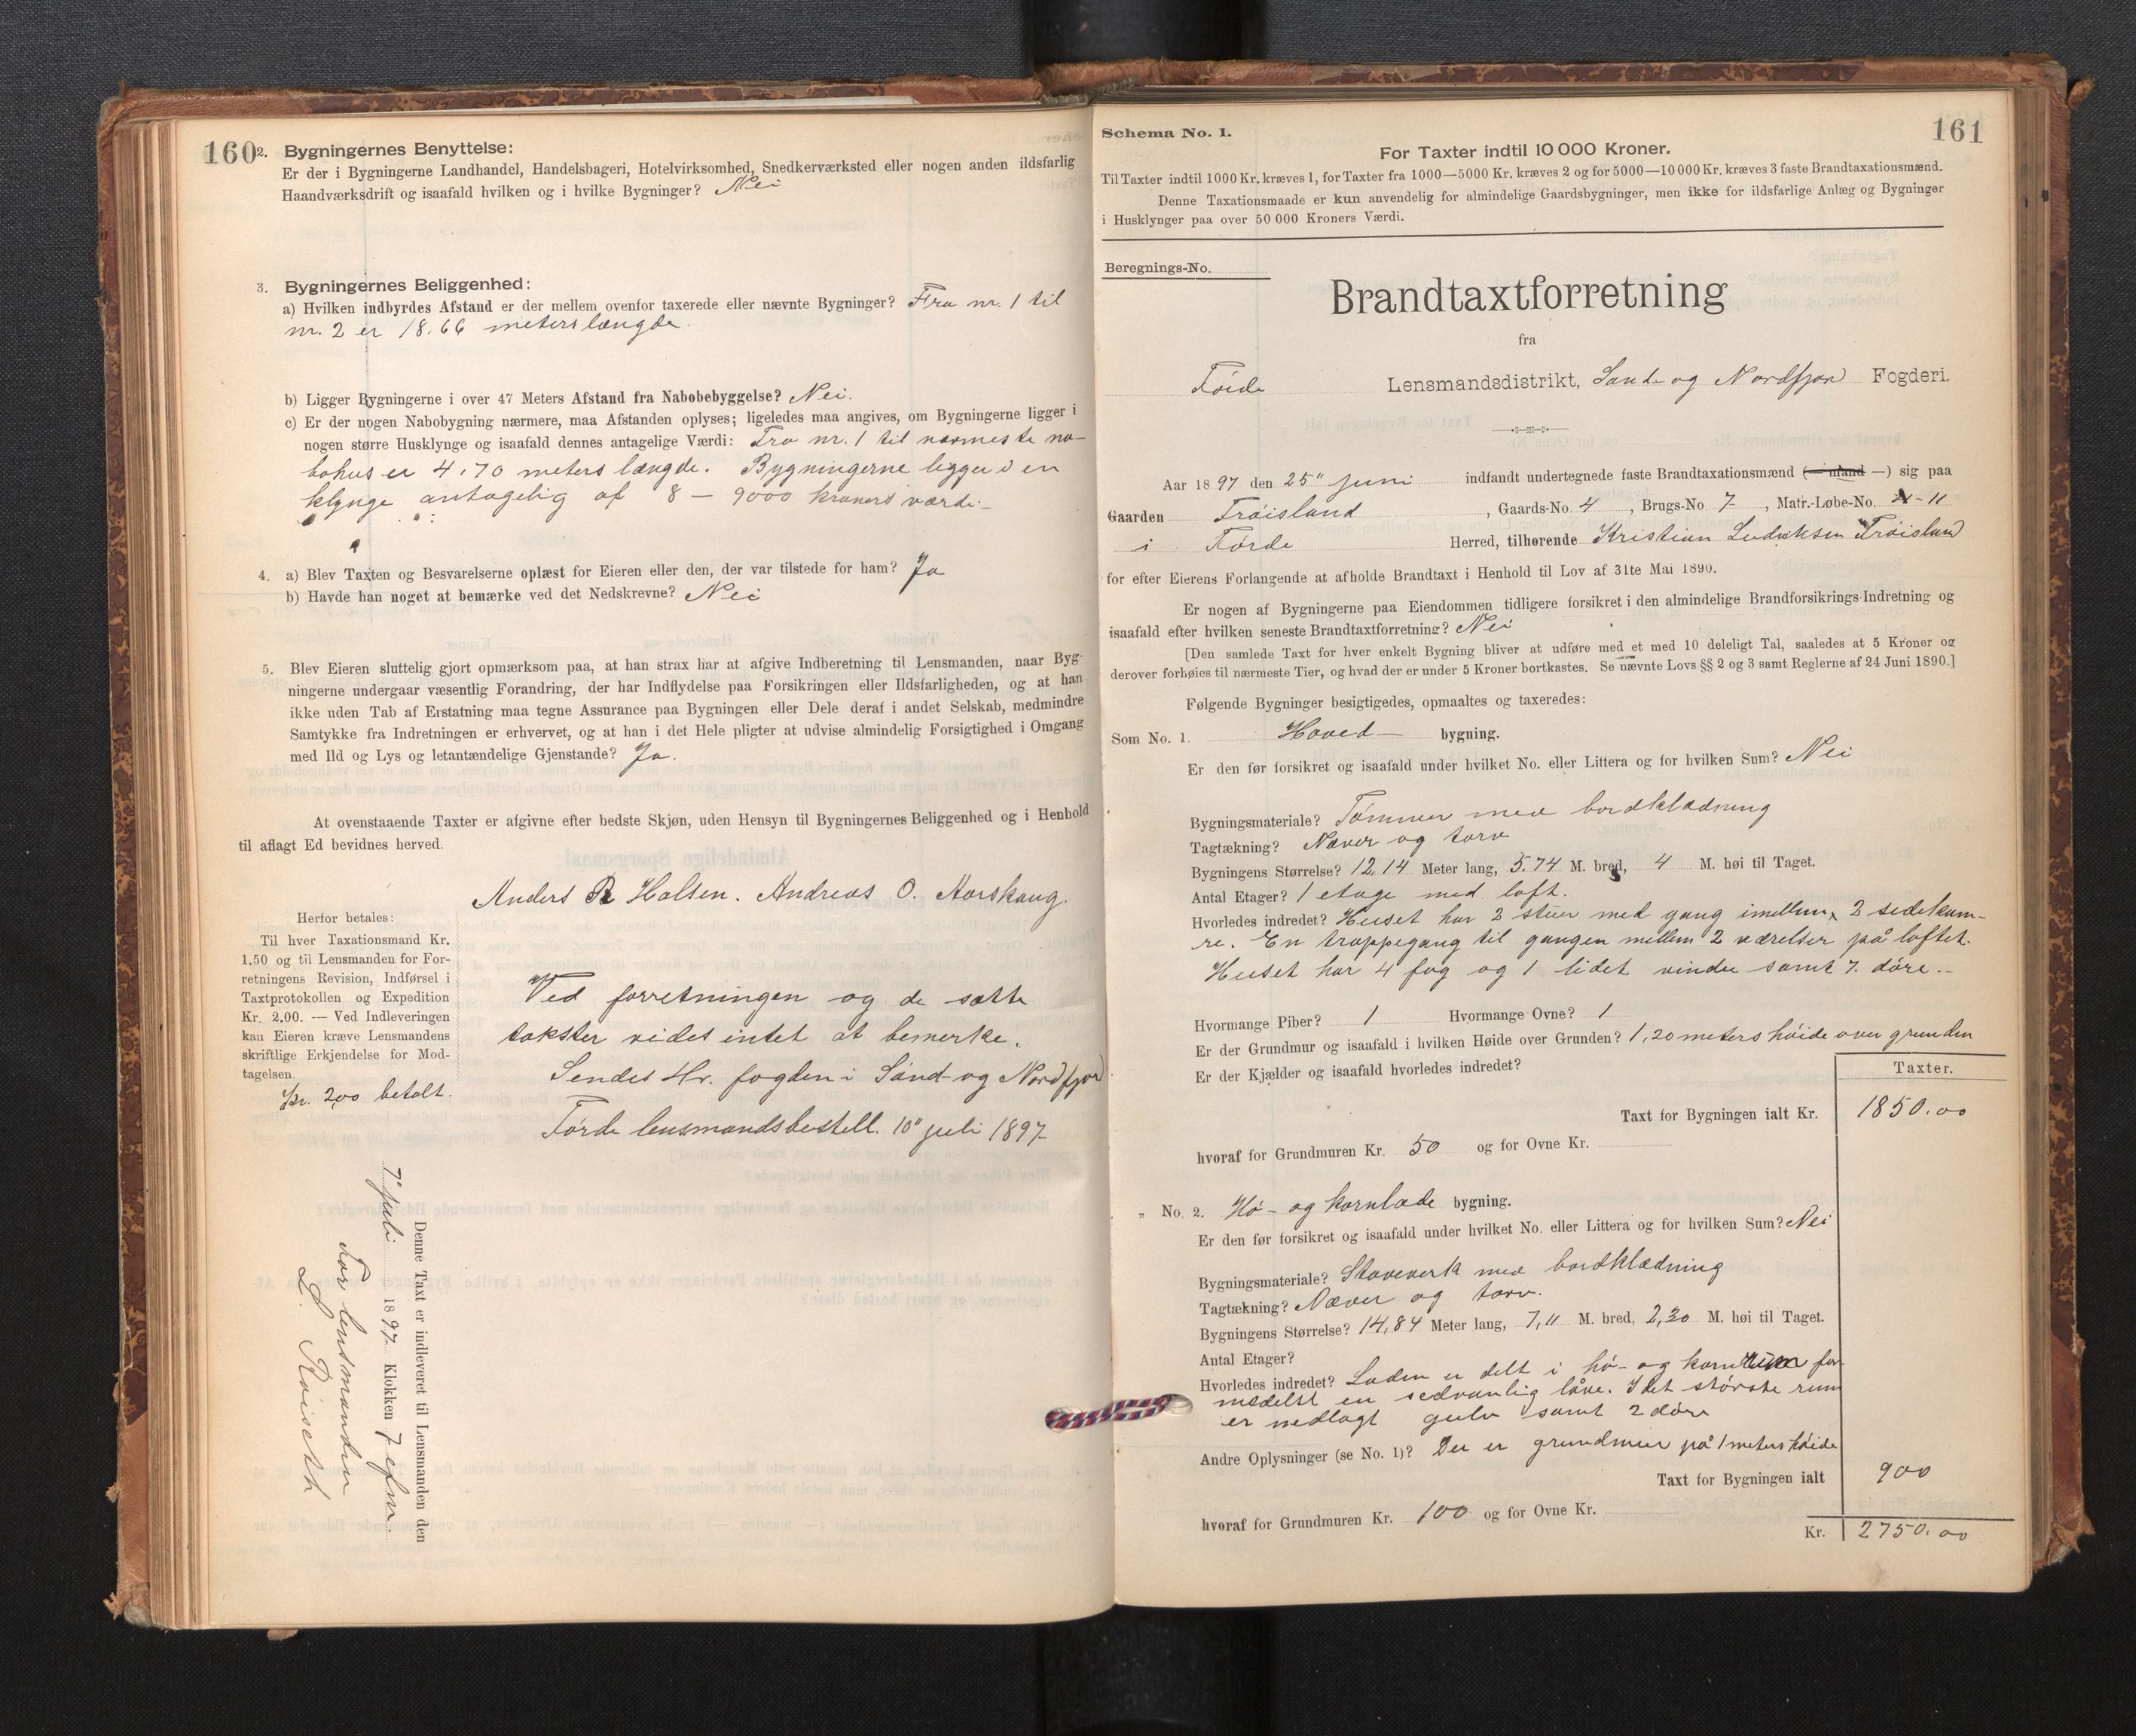 160
2. Bygningernes Benyttelse:
Er der i Bygningerne Landhandel, Handelsbageri, Hotelvirksomhed, Snedkerværksted eller nogen anden ildsfarlig
Haandværksdrift og isaafald hvilken og i hvilke Bygninger? Nei
3. Bygningernes Beliggenhed:
a) Hvilken indbyrdes Afstand er der mellem ovenfor taxerede eller nævnte Bygninger? Fra nr. 1 til
nr. 2 er 18.66 meters længde.
b) Ligger Bygningerne i over 47 Meters Afstand fra Nabobebyggelse? Nei.
c) Er der nogen Nabobygning nærmere, maa Afstanden oplyses; ligeledes maa angives, om Bygningerne ligger i
nogen større Husklynge og isaafald dennes antagelige Værdi: Fra nr. 1 til nærmeste na-
bohus er 4.70 meters længde. Bygningerne ligger i en
klynge antagelig af 8 – 9000 kroners værdi –
4. a) Blev Taxten og Besvarelserne oplæst for Eieren eller den, der var tilstede for ham? Ja
b) Havde han noget at bemærke ved det Nedskrevne? Nei
5. Blev Eieren sluttelig gjort opmærksom paa, at han strax har at afgive Indberetning til Lensmanden, naar Byg-
ningerne undergaar væsentlig Forandring, der har Indflydelse paa Forsikringen eller Ildsfarligheden, og at han
ikke uden Tab af Erstatning maa tegne Assurance paa Bygningen eller Dele deraf i andet Selskab, medmindre
Samtykke fra Indretningen er erhvervet, og at han i det Hele pligter at udvise almindelig Forsigtighed i Omgang
med Ild og Lys og letantændelige Gjenstande? Ja.
At ovenstaaende Taxter er afgivne efter bedste Skjøn, uden Hensyn til Bygningernes Beliggenhed og i Henhold
til aflagt Ed bevidnes herved.
Anders R Halsen. Andreas O. Aarskaug.
Herfor betales:
Til hver Taxationsmand Kr.
1,50 og til Lensmanden for For-
retningens Revision, Indførsel i
Taxtprotokollen og Expedition
Kr. 2,00. — Ved Indleveringen
kan Eieren kræve Lensmandens
skriftlige Erkjendelse for Mod-
tagelsen.
Kr. 2,00 betalt.
Ved forretningen og de satte
takster vides intet at bemerke.
Sendes Hr. fogden i Sønd- og Nordfjord
Førde lensmandsbestell. 10" juli 1897
Denne Taxt er indleveret til Lensmanden den
7" juli 1897 Klokken 7 efm.
For lensmanden
L. Røiseth
161
Schema No. 1.
For Taxter indtil 10 000 Kroner.
Til Taxter indtil 1000 Kr. kræves 1, for Taxter fra 1000—5000 Kr. kræves 2 og for 5000—10000 Kr. kræves 3 faste Brandtaxationsmænd.
Denne Taxationsmaade er kun anvendelig for almindelige Gaardsbygninger, men ikke for ildsfarlige Anlæg og Bygninger
i Husklynger paa over 50 000 Kroners Værdi.
Beregnings-No.
Brandtaxtforretning
fra
Førde Lensmandsdistrikt, Sønd- og Nordfjord Fogderi.
Aar 1897 den 25" juni indfandt undertegnede faste Brandtaxationsmænd (— mand —) sig paa
Gaarden Frøisland, Gaards-No. 4, Brugs-No. 7, Matr.-Løbe-No. 11
i Førde Herred, tilhørende Kristian Ludviksen Frøisland
for efter Eierens Forlangende at afholde Brandtaxt i Henhold til Lov af 31te Mai 1890.
Er nogen af Bygningerne paa Eiendommen tidligere forsikret i den almindelige Brandforsikrings-Indretning og
isaafald efter hvilken seneste Brandtaxtforretning? Nei
[Den samlede Taxt for hver enkelt Bygning bliver at udføre med et med 10 deleligt Tal, saaledes at 5 Kroner og
derover forhøies til nærmeste Tier, og hvad der er under 5 Kroner bortkastes. Se nævnte Lovs §§ 2 og 3 samt Reglerne af 24 Juni 1890.]
Følgende Bygninger besigtigedes, opmaaltes og taxeredes:
Som No. 1. Hoved- bygning.
Er den før forsikret og isaafald under hvilket No. eller Littera og for hvilken Sum? Nei
Bygningsmateriale? Tømmer med bordklædning
Tagtækning? Næver og torv
Bygningens Størrelse? 12,14 Meter lang, 5.74 M. bred, 4 M. høi til Taget.
Antal Etager? 1 etage med loft.
Hvorledes indredet? Huset har 2 stuer med gang imellem, 2 sedelkam-
re. En trappegang til gangen mellem 2 værelser på loftet.
Huset har 4 fag og 1 lidet vindu samt 7. døre. -
Hvormange Piber? 1 Hvormange Ovne? 1
Er der Grundmur og isaafald i hvilken Høide over Grunden? 1,20 meters høide over grunden
Er der Kjælder og isaafald hvorledes indredet?
Taxter.
Taxt for Bygningen ialt Kr. 1850.00
hvoraf for Grundmuren Kr. 50 og for Ovne Kr.
„ No. 2. Hø- og kornlade bygning.
Er den før forsikret og isaafald under hvilket No. eller Littera og for hvilken Sum? Nei
Bygningsmateriale? Staveverk med bordklædning
Tagtækning? Næver og torv.
Bygningens Størrelse? 14,84 Meter lang, 7,11 M. bred, 2,30 M. høi til Taget.
Antal Etager?
Hvorledes indredet? Laden er delt i hø- og kornrum for-
medelst en sedvanlig låve. I det største rum
er nedlagt gulv samt 2 døre
Andre Oplysninger (se No. 1)? Der er grundmur på 1 meters høide
Taxt for Bygningen ialt 900
hvoraf for Grundmuren Kr. 100 og for Ovne Kr.
Kr. 2750.00